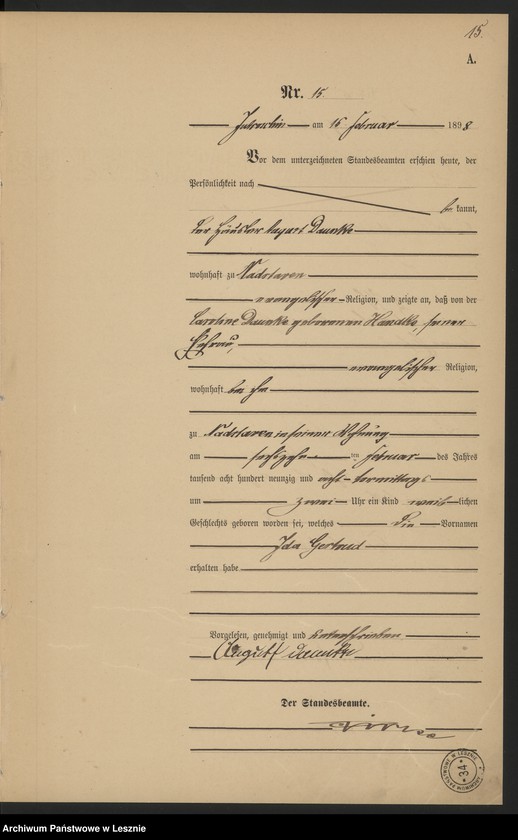 15.
A.
Nr. 15.
am 15. Februar 1898
Vor dem unterzeichneten Standesbeamten erschien heute, der
Persönlichkeit nach
be kannt,
der Häusler August
wohnhaft zu
evangelischer Religion, und zeigte an, daß von der
Caroline geborenen Handke, seiner
Ehefrau,
evangelischer Religion,
wohnhaft bei ihm
zu in seiner Wohnung
am Februar des Jahres
tausend acht hundert neunzig und acht Vormittags
um zwei Uhr ein Kind weib lichen
Geschlechts geboren worden sei, welches die Vornamen
Ida Gertrud
erhalten habe
Vorgelesen, genehmigt und unterschrieben
August
Der Standesbeamte.
ARCHIWUM PAŃSTWOWE W LESZNIE
34
Archiwum Państwowe w Lesznie